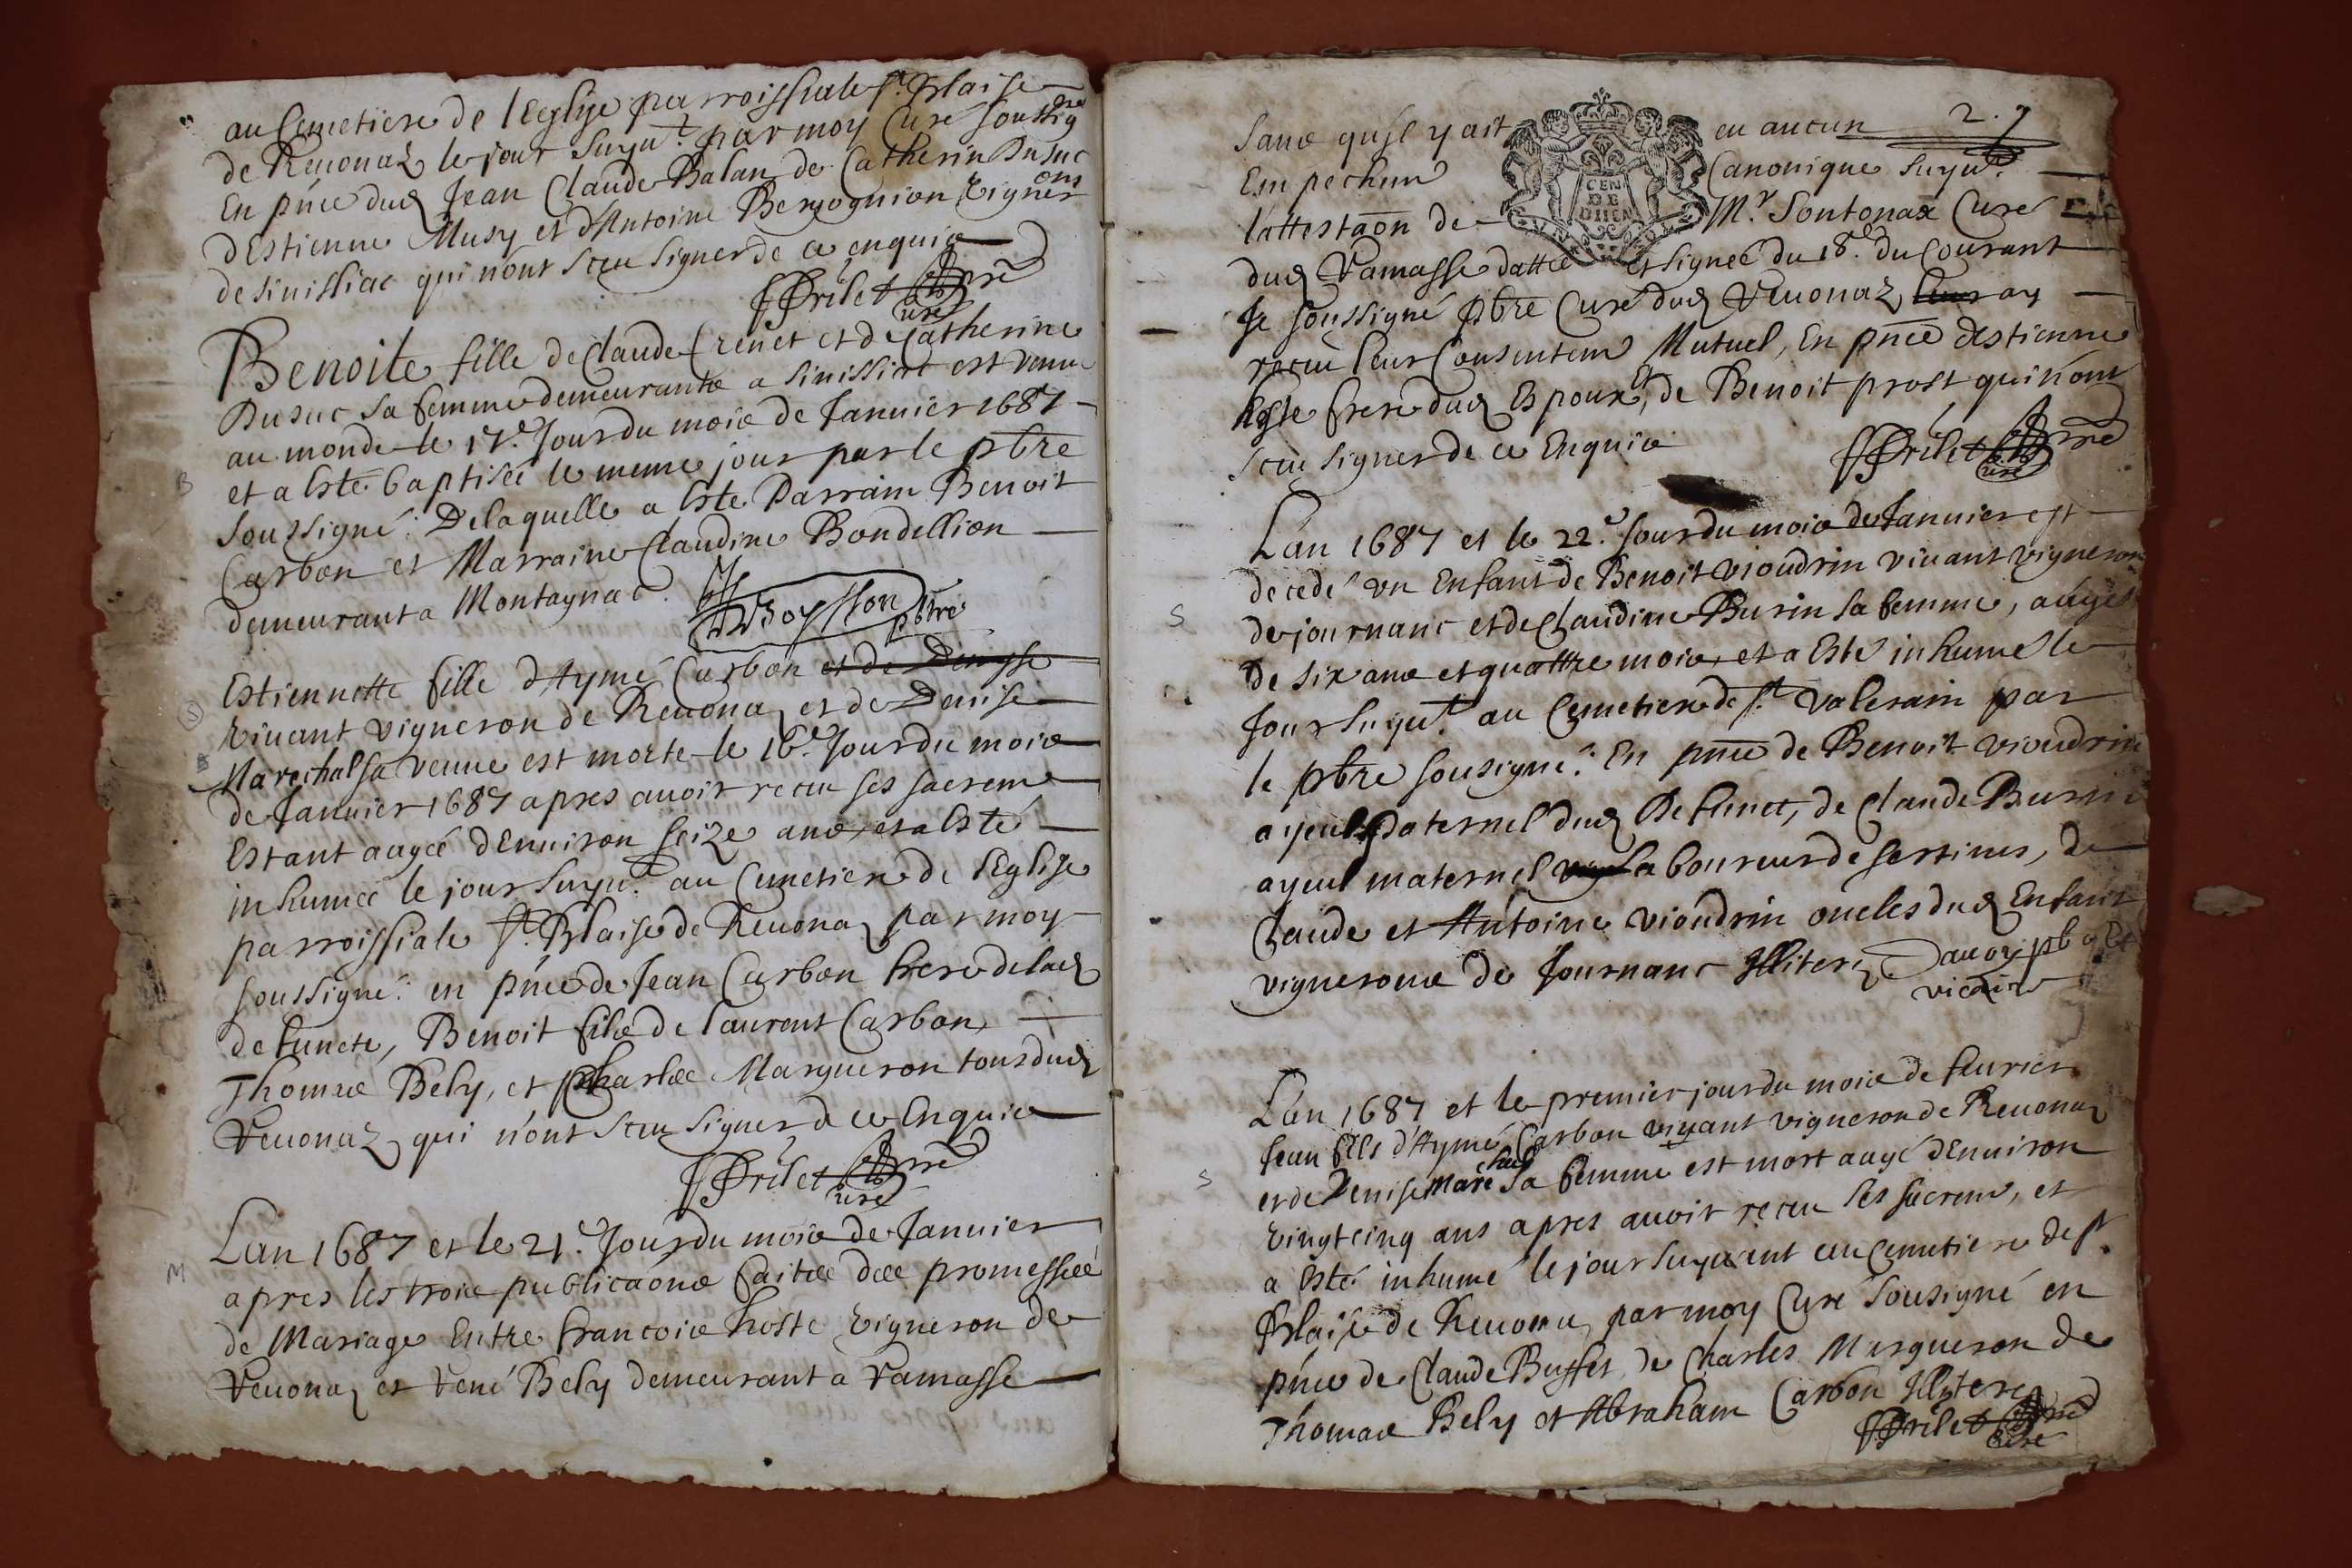 au Cemetiere de l'Eglise parroissiale St. Blaise
de Reuonaz le jour suyut. par moy Curé soussigné
En pnce dud Jean Claude Balan de Catherin Dusuc
d'Estienne Musy et d'Antoine Bergognion vignerons
de sinissiac qui n'ont sceu signer de ce enquis
F Prilet pbre
Curé
Benoite fille de Claude Crenet et de Catherine
Dusuc sa femme demeurante a sinissiat est venue
au monde le 17e. Jour du mois de Januier 1687
B
et a esté baptisée le meme jour par le pbre
soussigné. De laquelle a esté Parrain Benoit
Carbon et Marraine Claudine Bondellion
demeurant a Montagnat.
Boysson pbtre
Estiennette fille d'Aymé Carbon et de Denyse
S
viuant vigneron de Reuonaz et de Denise
Marechal sa veuue est morte le 16e. Jour du mois
de Januier 1687 apres auoir receu ses sacrems
estant aagée d'Enuiron seize ans, et a esté
inhumée le jour suyut. au Cemetiere de l'Eglise
parroissiale St. Blaise de Reuonaz par moy
soussigné. en pnce de Jean Carbon frere de lad
defuncte, Benoit fils de Laurent Carbon,
Thomas Bely, et Charles Margueron tous dud
Reuonaz qui n'ont sceu signer de ce Enquis
F Prilet pbre
Curé
M
Lan 1687 et le 21e. Jour du mois de Januier
apres les trois publicaons faites des promesses
de Mariage Entre francois hoste vigneron de
Reuonaz et René Bely demeurant a Ramasse
sans qu'il y ait eu aucun 2.
Empechem Canonique suyut.
CEN
DE
DIIEN
l'attestaon de Mr. Sontonax Curé
dud Ramasse dattée et signée du 18e. du Courant
Je soussigné pbre Curé dud Reuonaz leur ay
receu leur Consentem Mutuel, En pnce d'Estienne
hoste frere dud Espoux, et de Benoit prost qui n'ont
sceu signer de ce Enquis
F Prilet pbre
Curé
Lan 1687 et le 22e. Jour du mois de Januier est
decedé vn Enfant de Benoit vioudrin viuant vigneron
S
de journanc et de Claudine Burin sa femme, aagé
de six ans et quattre mois, et a Esté inhumé le
Jour suyut. au Cemetiere de St. valerain par
le pbre sousigné. En pnce de Benoit vioudrin
ayeul Paternel dud Defunct, de Claude Burin
ayeul maternel laboureur de sertines, de
Claude et Antoine vioudrin oncles dud Enfant
vignerons de Journanc Illiterez
vicaire
Lan 1687 et le premier jour du mois de feurier
Jean fils d'Aymé Carbon viuant vigneron de Reuonaz
S
et de Denise Marechal sa femme est mort aagé d'Enuiron
vingtcinq ans apres auoir receu ses sacrems, et
a esté inhumé le jour suyuant au Cemetiere de St.
Blaise de Reuonaz par moy Curé Sousigné en
pnce de Claude Buffet, de Charles Margueron de
Thomas Bely et Abraham Carbon Illyterez
F Prilet pbre
Curé